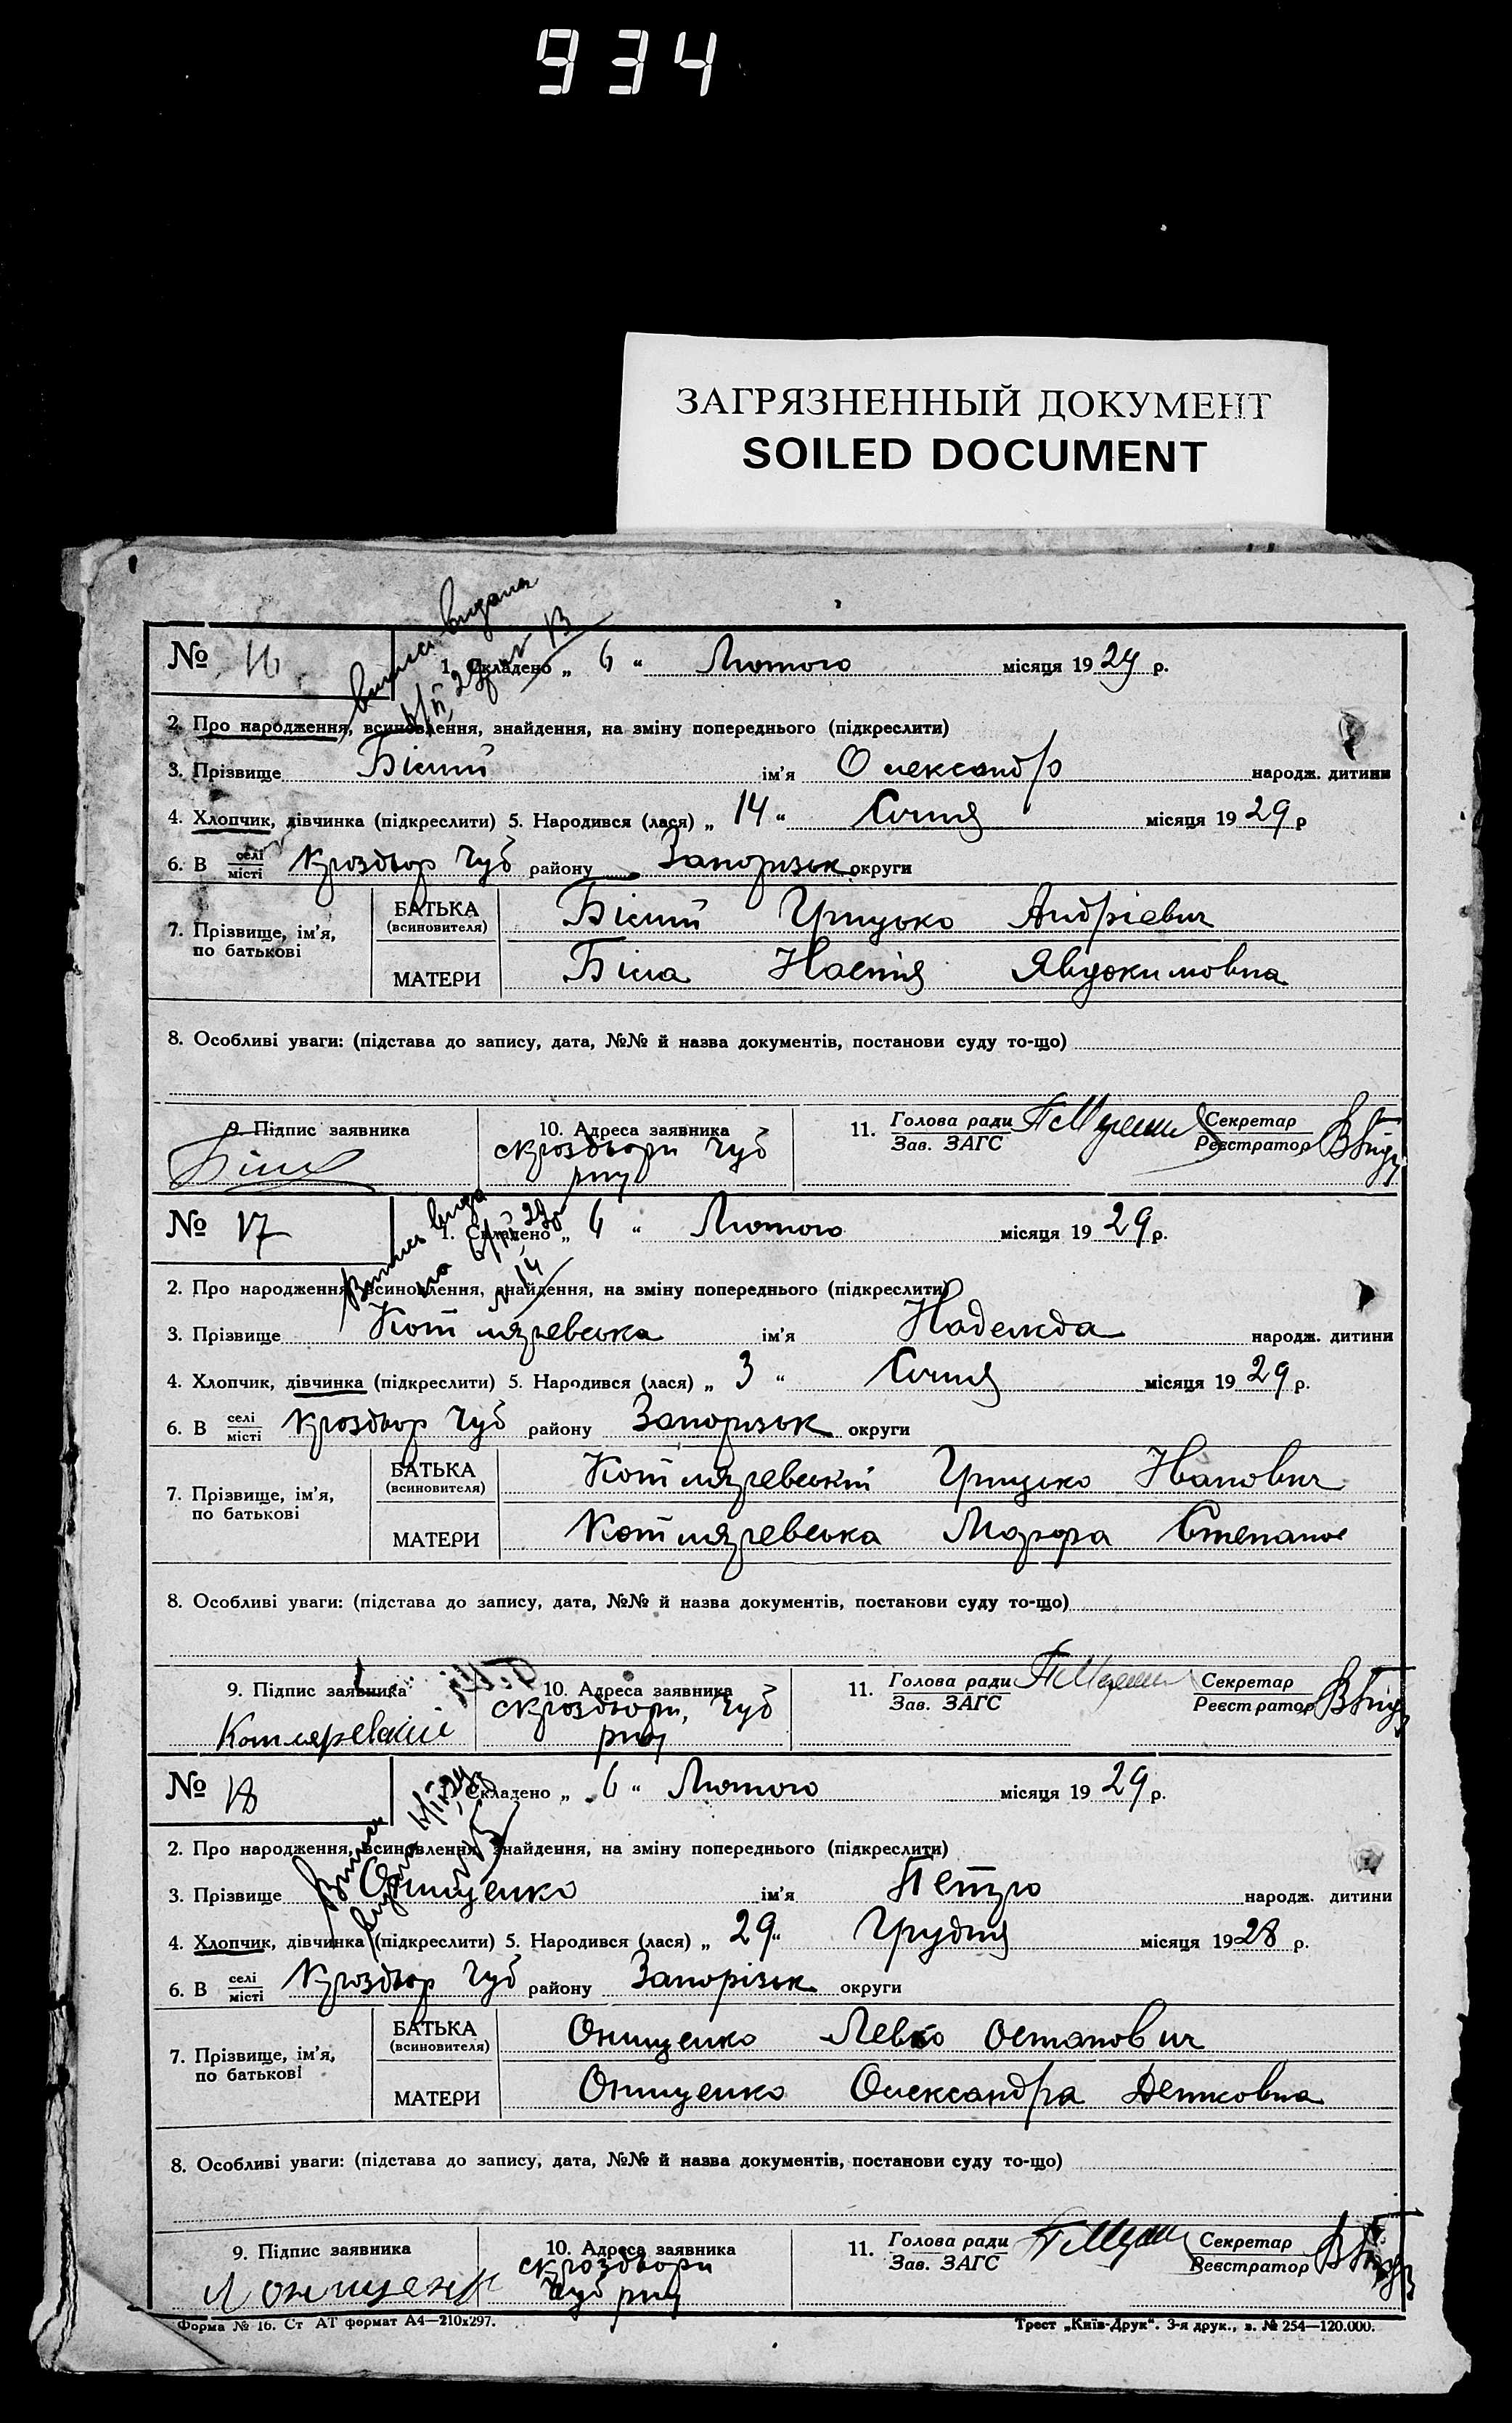 934
ЗАГРЯЗНЕННЫЙ ДОКУМЕНТ
SOILED DOCUMENT
№ 16
1. Складено „ 6 “ Лютого місяця 1929 р.
2. Про народження, всиновлення, знайдення, на зміну попереднього (підкреслити)
3. Прізвище Білий ім'я Олександр народж. дитини
4. Хлопчик, дівчинка (підкреслити) 5. Народився (лася) „ 14 “ Січня місяця 1929 р
6. В селі/місті району Запорізьк округи
7. Прізвище, ім'я, по батькові
БАТЬКА (всиновителя) Білий Грицько Андрієвич
МАТЕРИ Біла Настя Явдокимовна
8. Особливі уваги: (підстава до запису, дата, №№ й назва документів, постанови суду то-що)
9. Підпис заявника 10. Адреса заявника 11. Голова ради Секретар
Зав. ЗАГС Реєстратор
№ 17
1. Складено „ 6 “ Лютого місяця 1929 р.
2. Про народження, всиновлення, знайдення, на зміну попереднього (підкреслити)
3. Прізвище Котляревська ім'я Надежда народж. дитини
4. Хлопчик, дівчинка (підкреслити) 5. Народився (лася) „ 3 “ Січня місяця 1929 р.
6. В селі/місті району Запорізьк округи
7. Прізвище, ім'я, по батькові
БАТЬКА (всиновителя) Котляревський Грицько Іванович
МАТЕРИ Котляревська Степанов
8. Особливі уваги: (підстава до запису, дата, №№ й назва документів, постанови суду то-що)
9. Підпис заявника 10. Адреса заявника 11. Голова ради Секретар
Зав. ЗАГС Реєстратор
Котляревский
№ 18
Складено „ 6 “ Лютого місяця 1929 р.
2. Про народження, всиновлення, знайдення, на зміну попереднього (підкреслити)
3. Прізвище Онищенко ім'я Петро народж. дитини
4. Хлопчик, дівчинка (підкреслити) 5. Народився (лася) „ 29 “ Грудня місяця 1928 р.
6. В селі/місті району Запорізьк округи
7. Прізвище, ім'я, по батькові
БАТЬКА (всиновителя) Онищенко Левко Остапович
МАТЕРИ Онищенко Олександра
8. Особливі уваги: (підстава до запису, дата, №№ й назва документів, постанови суду то-що)
9. Підпис заявника 10. Адреса заявника 11. Голова ради Секретар
Зав. ЗАГС Реєстратор
Форма № 16. Ст АТ формат А4—210х297. Трест „Київ-Друк“. 3-я друк., з. № 254—120.000.